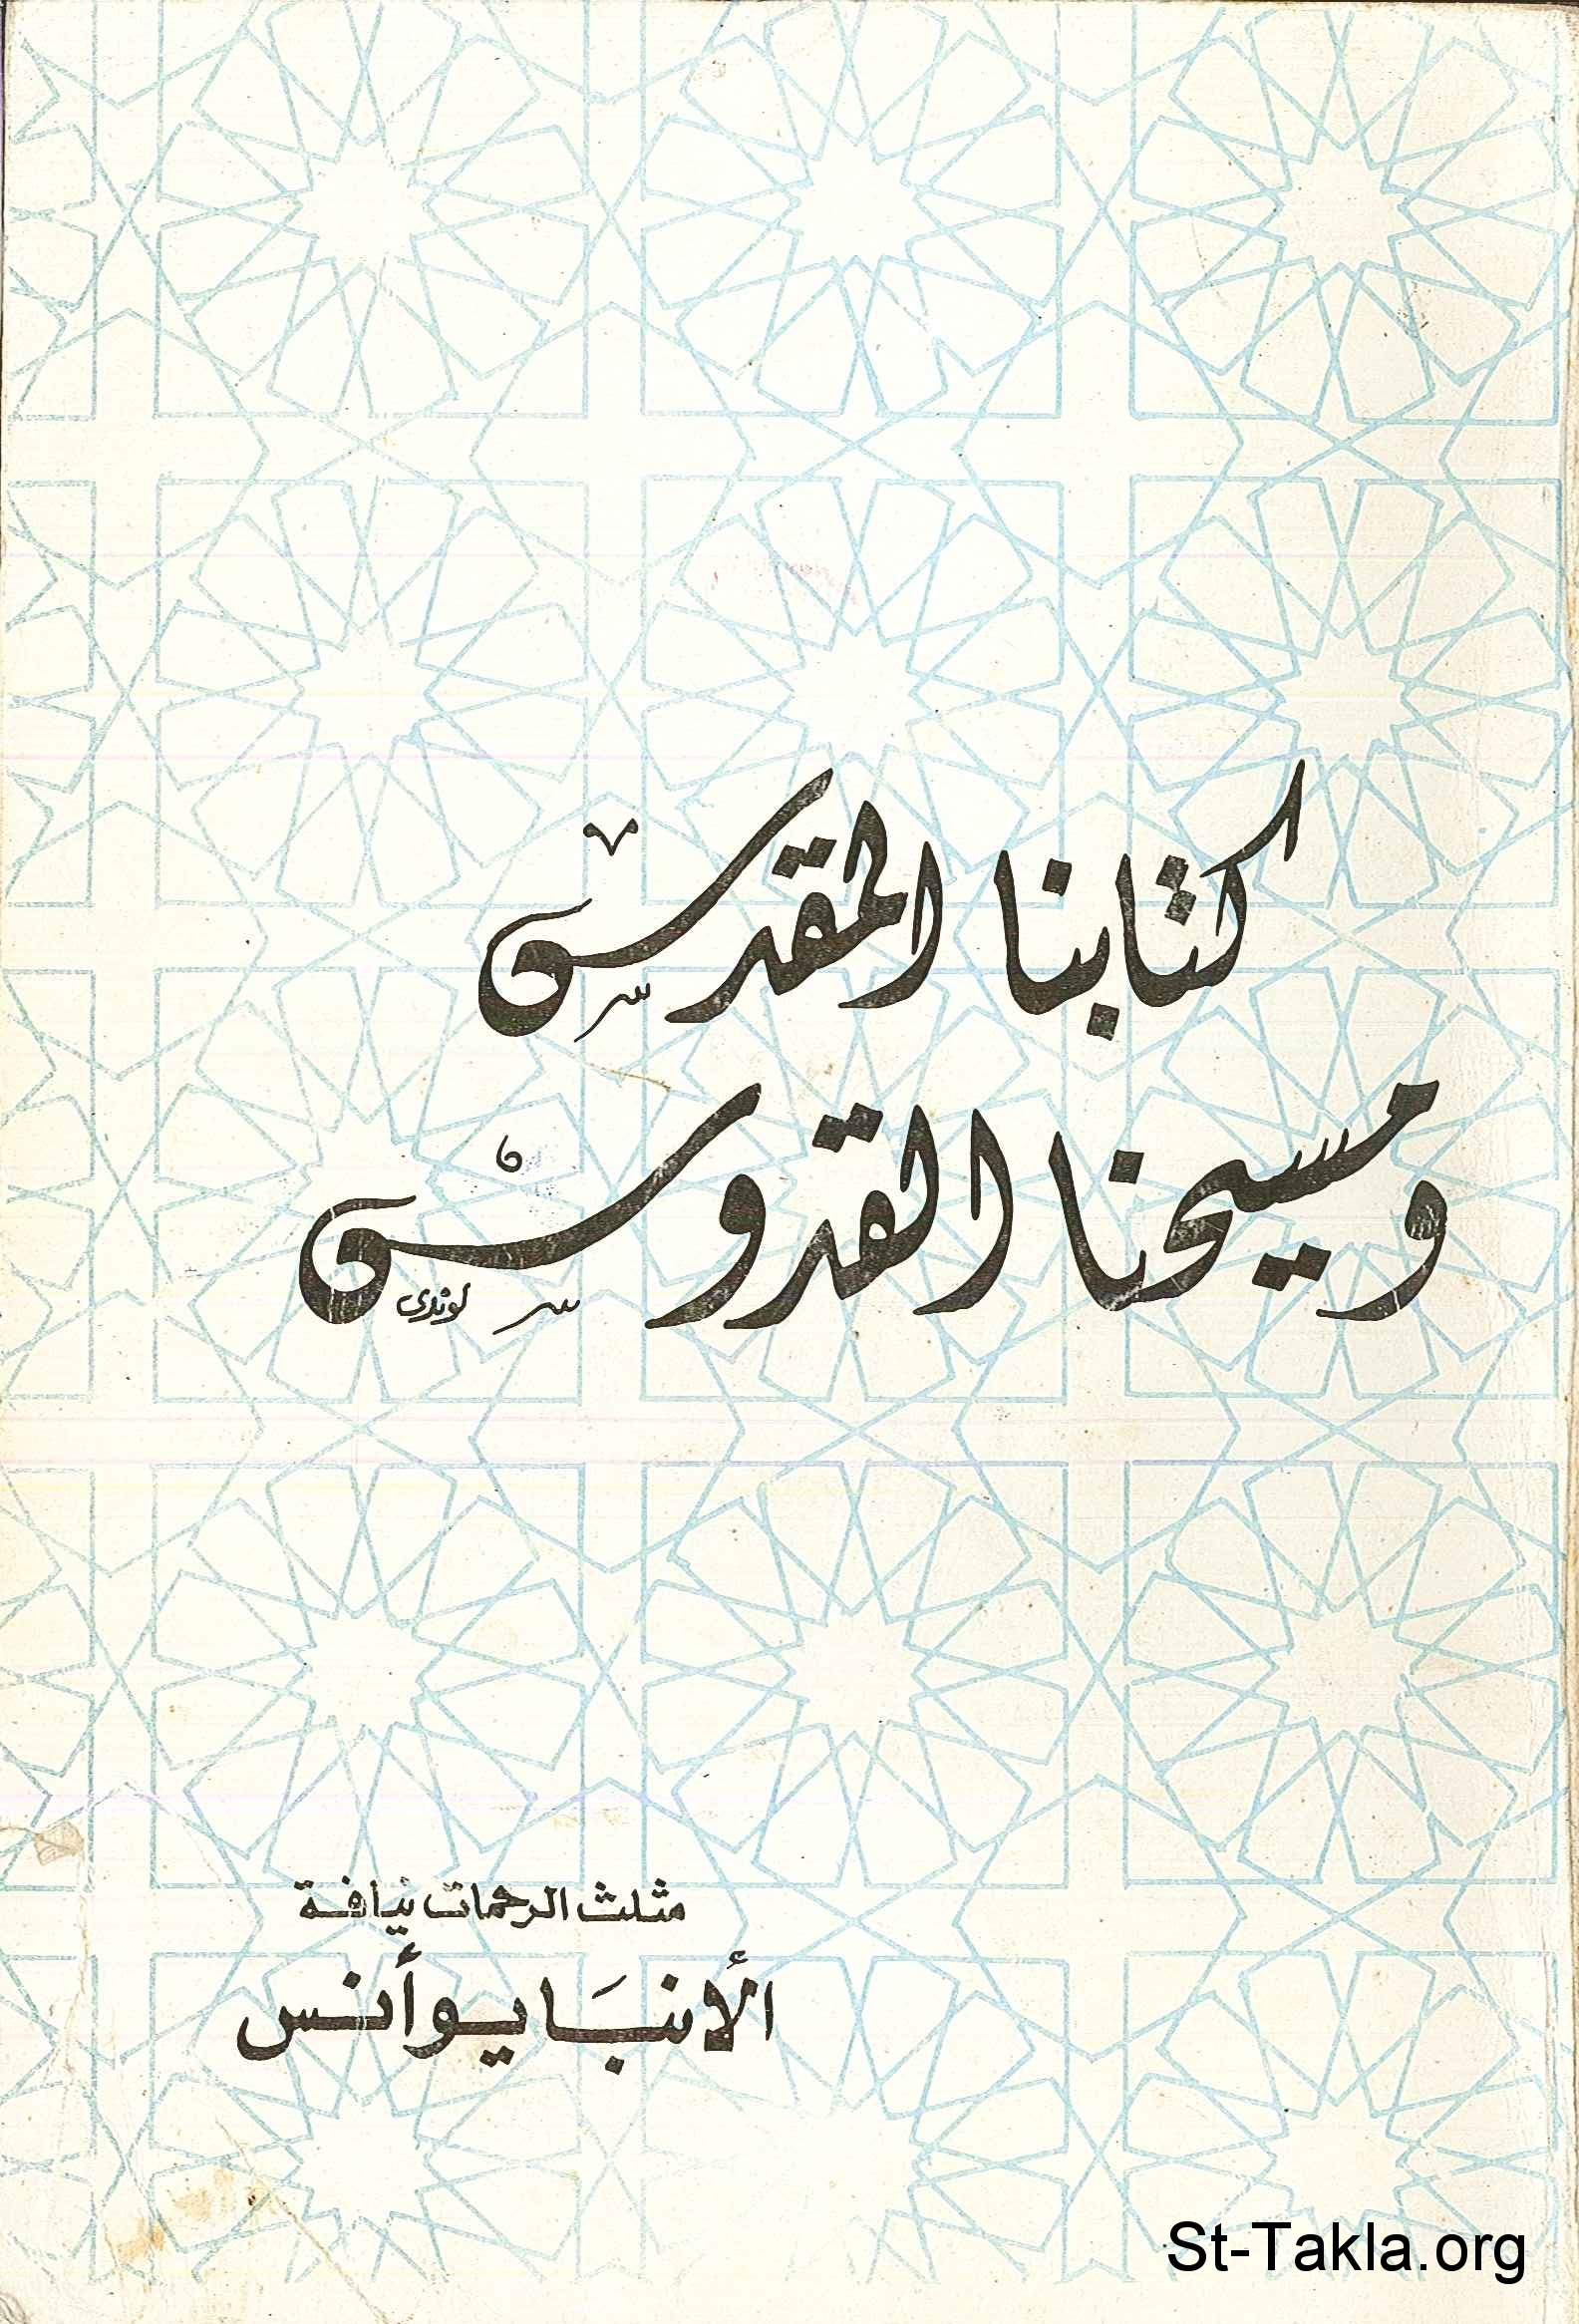 كتابنا المقدس
ومسيحنا القدوس
لوندى
مثلث الرحمات نيافة
الأنبَا يوأنس
St-Takla.org